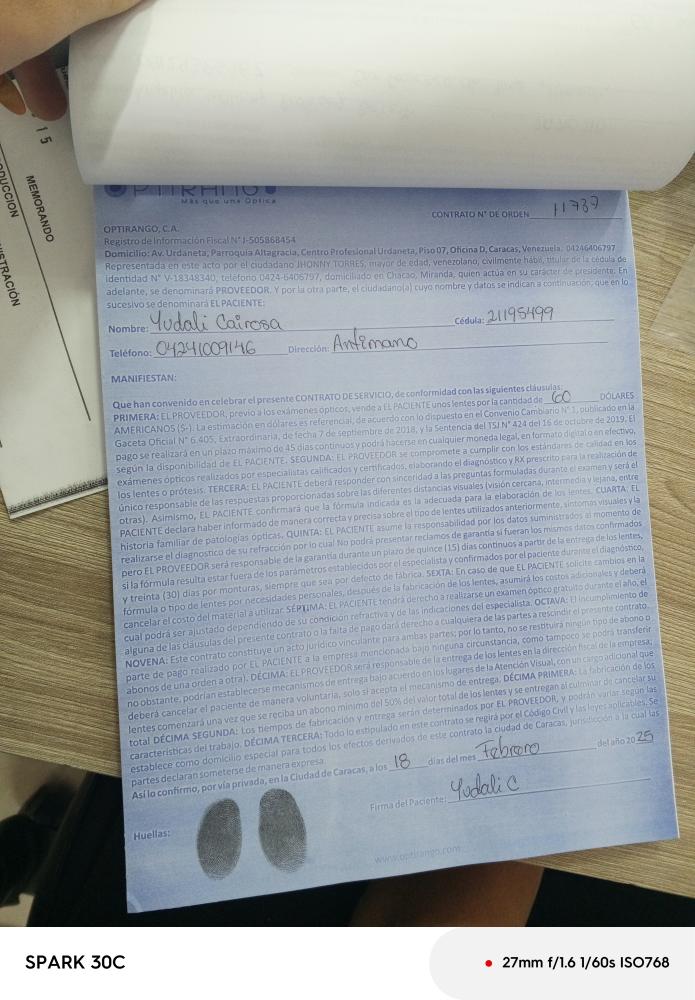 15
MEMORANDO
ODUCCION
ISTRACIÓN
OPTIRANGO
Más que una Óptica
CONTRATO N° DE ORDEN 11737
OPTIRANGO, C.A.
Registro de Información Fiscal N° J-505868454
Domicilio: Av. Urdaneta, Parroquia Altagracia, Centro Profesional Urdaneta, Piso 07, Oficina D, Caracas, Venezuela. 04246406797
Representada en este acto por el ciudadano JHONNY TORRES, mayor de edad, venezolano, civilmente hábil, titular de la cédula de
identidad N° V-18348340, teléfono 0424-6406797, domiciliado en Chacao, Miranda, quien actúa en su carácter de presidente. En
adelante, se denominará PROVEEDOR. Y por la otra parte, el ciudadano(a) cuyo nombre y datos se indican a continuación, que en lo
sucesivo se denominará EL PACIENTE:
Nombre: Yudali Cairosa Cédula: 21195499
Teléfono: 04241009146 Dirección: Antimano
MANIFIESTAN:
Que han convenido en celebrar el presente CONTRATO DE SERVICIO, de conformidad con las siguientes cláusulas:
PRIMERA: EL PROVEEDOR, previo a los exámenes ópticos, vende a EL PACIENTE unos lentes por la cantidad de 60 DÓLARES
AMERICANOS ($-). La estimación en dólares es referencial, de acuerdo con lo dispuesto en el Convenio Cambiario N° 1, publicado en la
Gaceta Oficial N° 6.405, Extraordinaria, de fecha 7 de septiembre de 2018, y la Sentencia del TSJ N° 424 del 16 de octubre de 2019. El
pago se realizará en un plazo máximo de 45 días continuos y podrá hacerse en cualquier moneda legal, en formato digital o en efectivo,
según la disponibilidad de EL PACIENTE. SEGUNDA: EL PROVEEDOR se compromete a cumplir con los estándares de calidad en los
exámenes ópticos realizados por especialistas calificados y certificados, elaborando el diagnóstico y RX prescritivo para la realización de
los lentes o prótesis. TERCERA: EL PACIENTE deberá responder con sinceridad a las preguntas formuladas durante el examen y será el
único responsable de las respuestas proporcionadas sobre las diferentes distancias visuales (visión cercana, intermedia y lejana, entre
otras). Asimismo, EL PACIENTE confirmará que la fórmula indicada es la adecuada para la elaboración de los lentes. CUARTA: EL
PACIENTE declara haber informado de manera correcta y precisa sobre el tipo de lentes utilizados anteriormente, síntomas visuales y la
historia familiar de patologías ópticas. QUINTA: EL PACIENTE asume la responsabilidad por los datos suministrados al momento de
realizarse el diagnostico de su refracción por lo cual No podrá presentar reclamos de garantía si fueran los mismos datos confirmados
pero EL PROVEEDOR será responsable de la garantía durante un plazo de quince (15) días continuos a partir de la entrega de los lentes,
si la fórmula resulta estar fuera de los parámetros establecidos por el especialista y confirmados por el paciente durante el diagnóstico,
y treinta (30) días por monturas, siempre que sea por defecto de fábrica. SEXTA: En caso de que EL PACIENTE solicite cambios en la
fórmula o tipo de lentes por necesidades personales, después de la fabricación de los lentes, asumirá los costos adicionales y deberá
cancelar el costo del material a utilizar. SÉPTIMA: EL PACIENTE tendrá derecho a realizarse un examen óptico gratuito durante el año, el
cual podrá ser ajustado dependiendo de su condición refractiva y de las indicaciones del especialista. OCTAVA: El incumplimiento de
alguna de las cláusulas del presente contrato o la falta de pago dará derecho a cualquiera de las partes a rescindir el presente contrato.
NOVENA: Este contrato constituye un acto jurídico vinculante para ambas partes; por lo tanto, no se restituirá ningún tipo de abono o
parte de pago realizado por EL PACIENTE a la empresa mencionada bajo ninguna circunstancia, como tampoco se podrá transferir
abonos de una orden a otra). DÉCIMA: EL PROVEEDOR será responsable de la entrega de los lentes en la dirección fiscal de la empresa;
no obstante, podrían establecerse mecanismos de entrega bajo acuerdo en los lugares de la Atención Visual, con un cargo adicional que
deberá cancelar el paciente de manera voluntaria, solo si acepta el mecanismo de entrega. DÉCIMA PRIMERA: La fabricación de los
lentes comenzará una vez que se reciba un abono mínimo del 50% del valor total de los lentes y se entregan al culminar de cancelar su
total DÉCIMA SEGUNDA: Los tiempos de fabricación y entrega serán determinados por EL PROVEEDOR, y podrán variar según las
características del trabajo. DÉCIMA TERCERA: Todo lo estipulado en este contrato se regirá por el Código Civil y las leyes aplicables. Se
establece como domicilio especial para todos los efectos derivados de este contrato la ciudad de Caracas, jurisdicción a la cual las
partes declaran someterse de manera expresa.
Así lo confirmo, por vía privada, en la Ciudad de Caracas, a los 18 días del mes Febrero del año 2025
Firma del Paciente: Yudali C
Huellas:
www.optirango.com
SPARK 30C
27mm f/1.6 1/60s ISO768